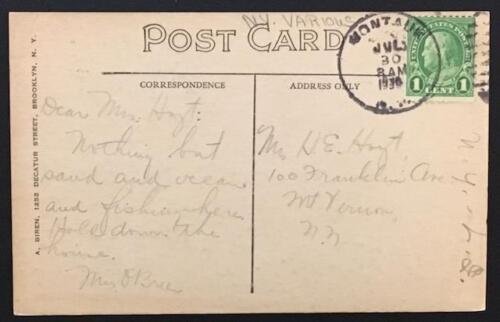 N.Y. VARIOUS
POST CARD
MONTAUK
JUL
30
8 AM
1930
N.Y.
1 CENT 1
CORRESPONDENCE
ADDRESS ONLY
A. BIREN, 1252 DECATUR STREET, BROOKLYN, N. Y.
Dear Mrs. Hoyt:
Nothing but
sand and ocean
and fishing here
Hold down the
house.
Mrs O'Brien
Mrs H E. Hoyt,
100 Franklin Ave.
Mt Vernon,
N.Y.